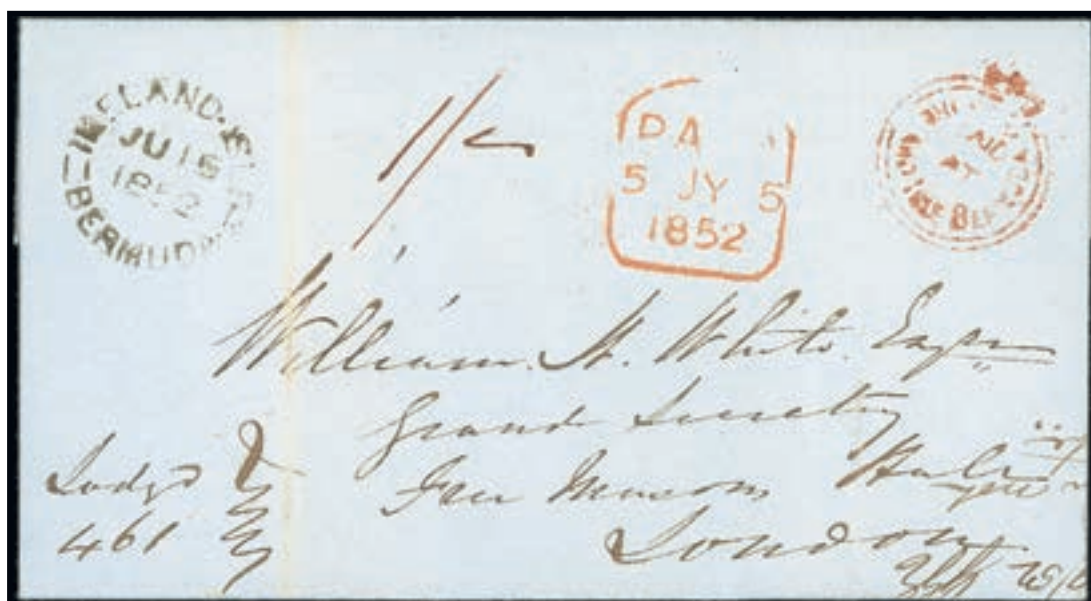 IRELAND
JU 15
1852
BERMUDA
1/-
PA
5 JY 5
1852
AT
William H. White Esqre
Grand Secretry
Free Masons Hall
London
Lodge
461